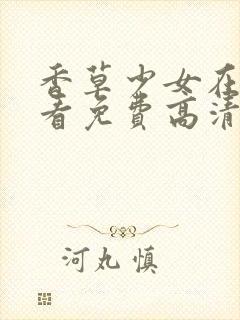 香草少女在
看免费高清
河丸慎